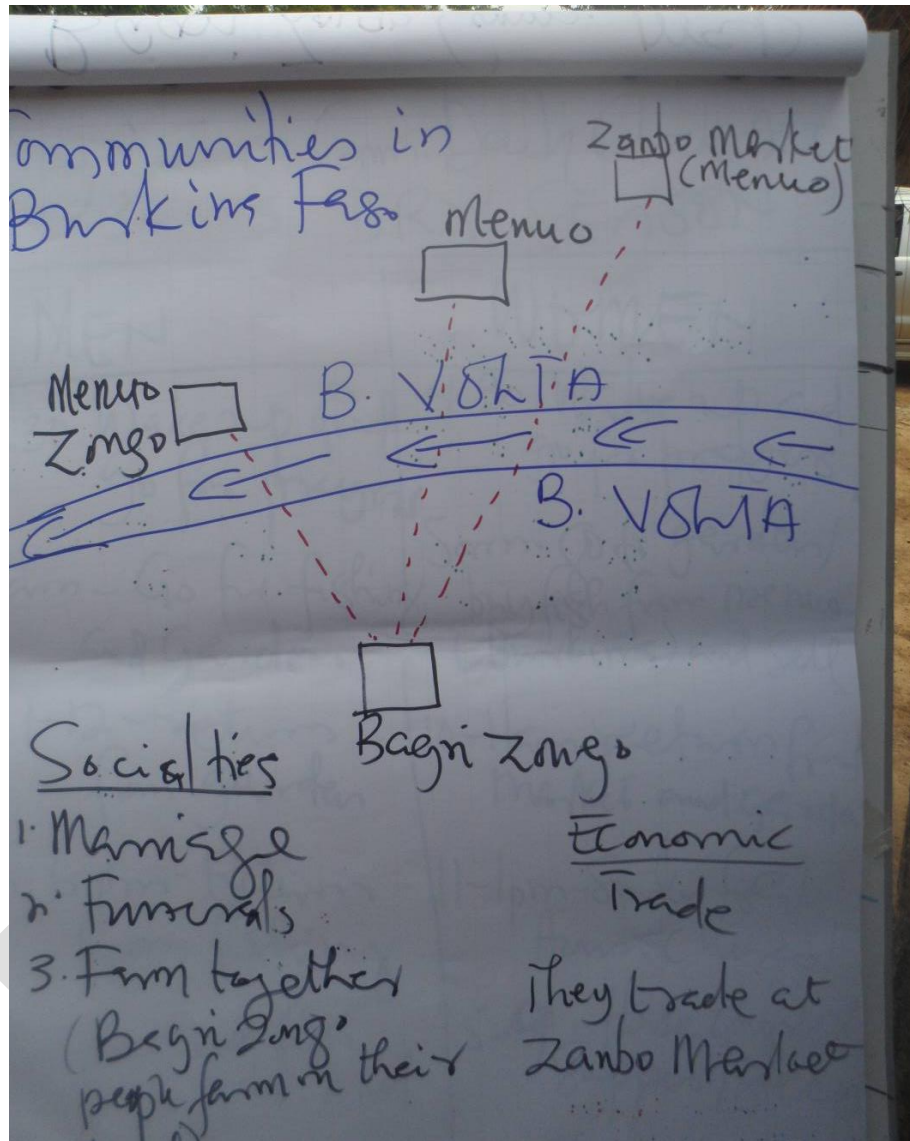 ommunities in
Burkina Faso
Zanbo Market
(Menuo)
Menuo
Menuo
Zongo
B. VOLTA
B. VOLTA
Bagri Zongo
Social ties
1. Marriage
2. Funerals
3. Farm together
(Bagri Zongo
people farm on their
Economic
Trade
They trade at
Zanbo Market